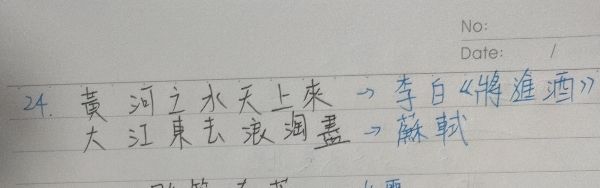 No:
Date: /
24. 黃河之水天上來 → 李白《將進酒》
大江東去浪淘盡 → 蘇軾